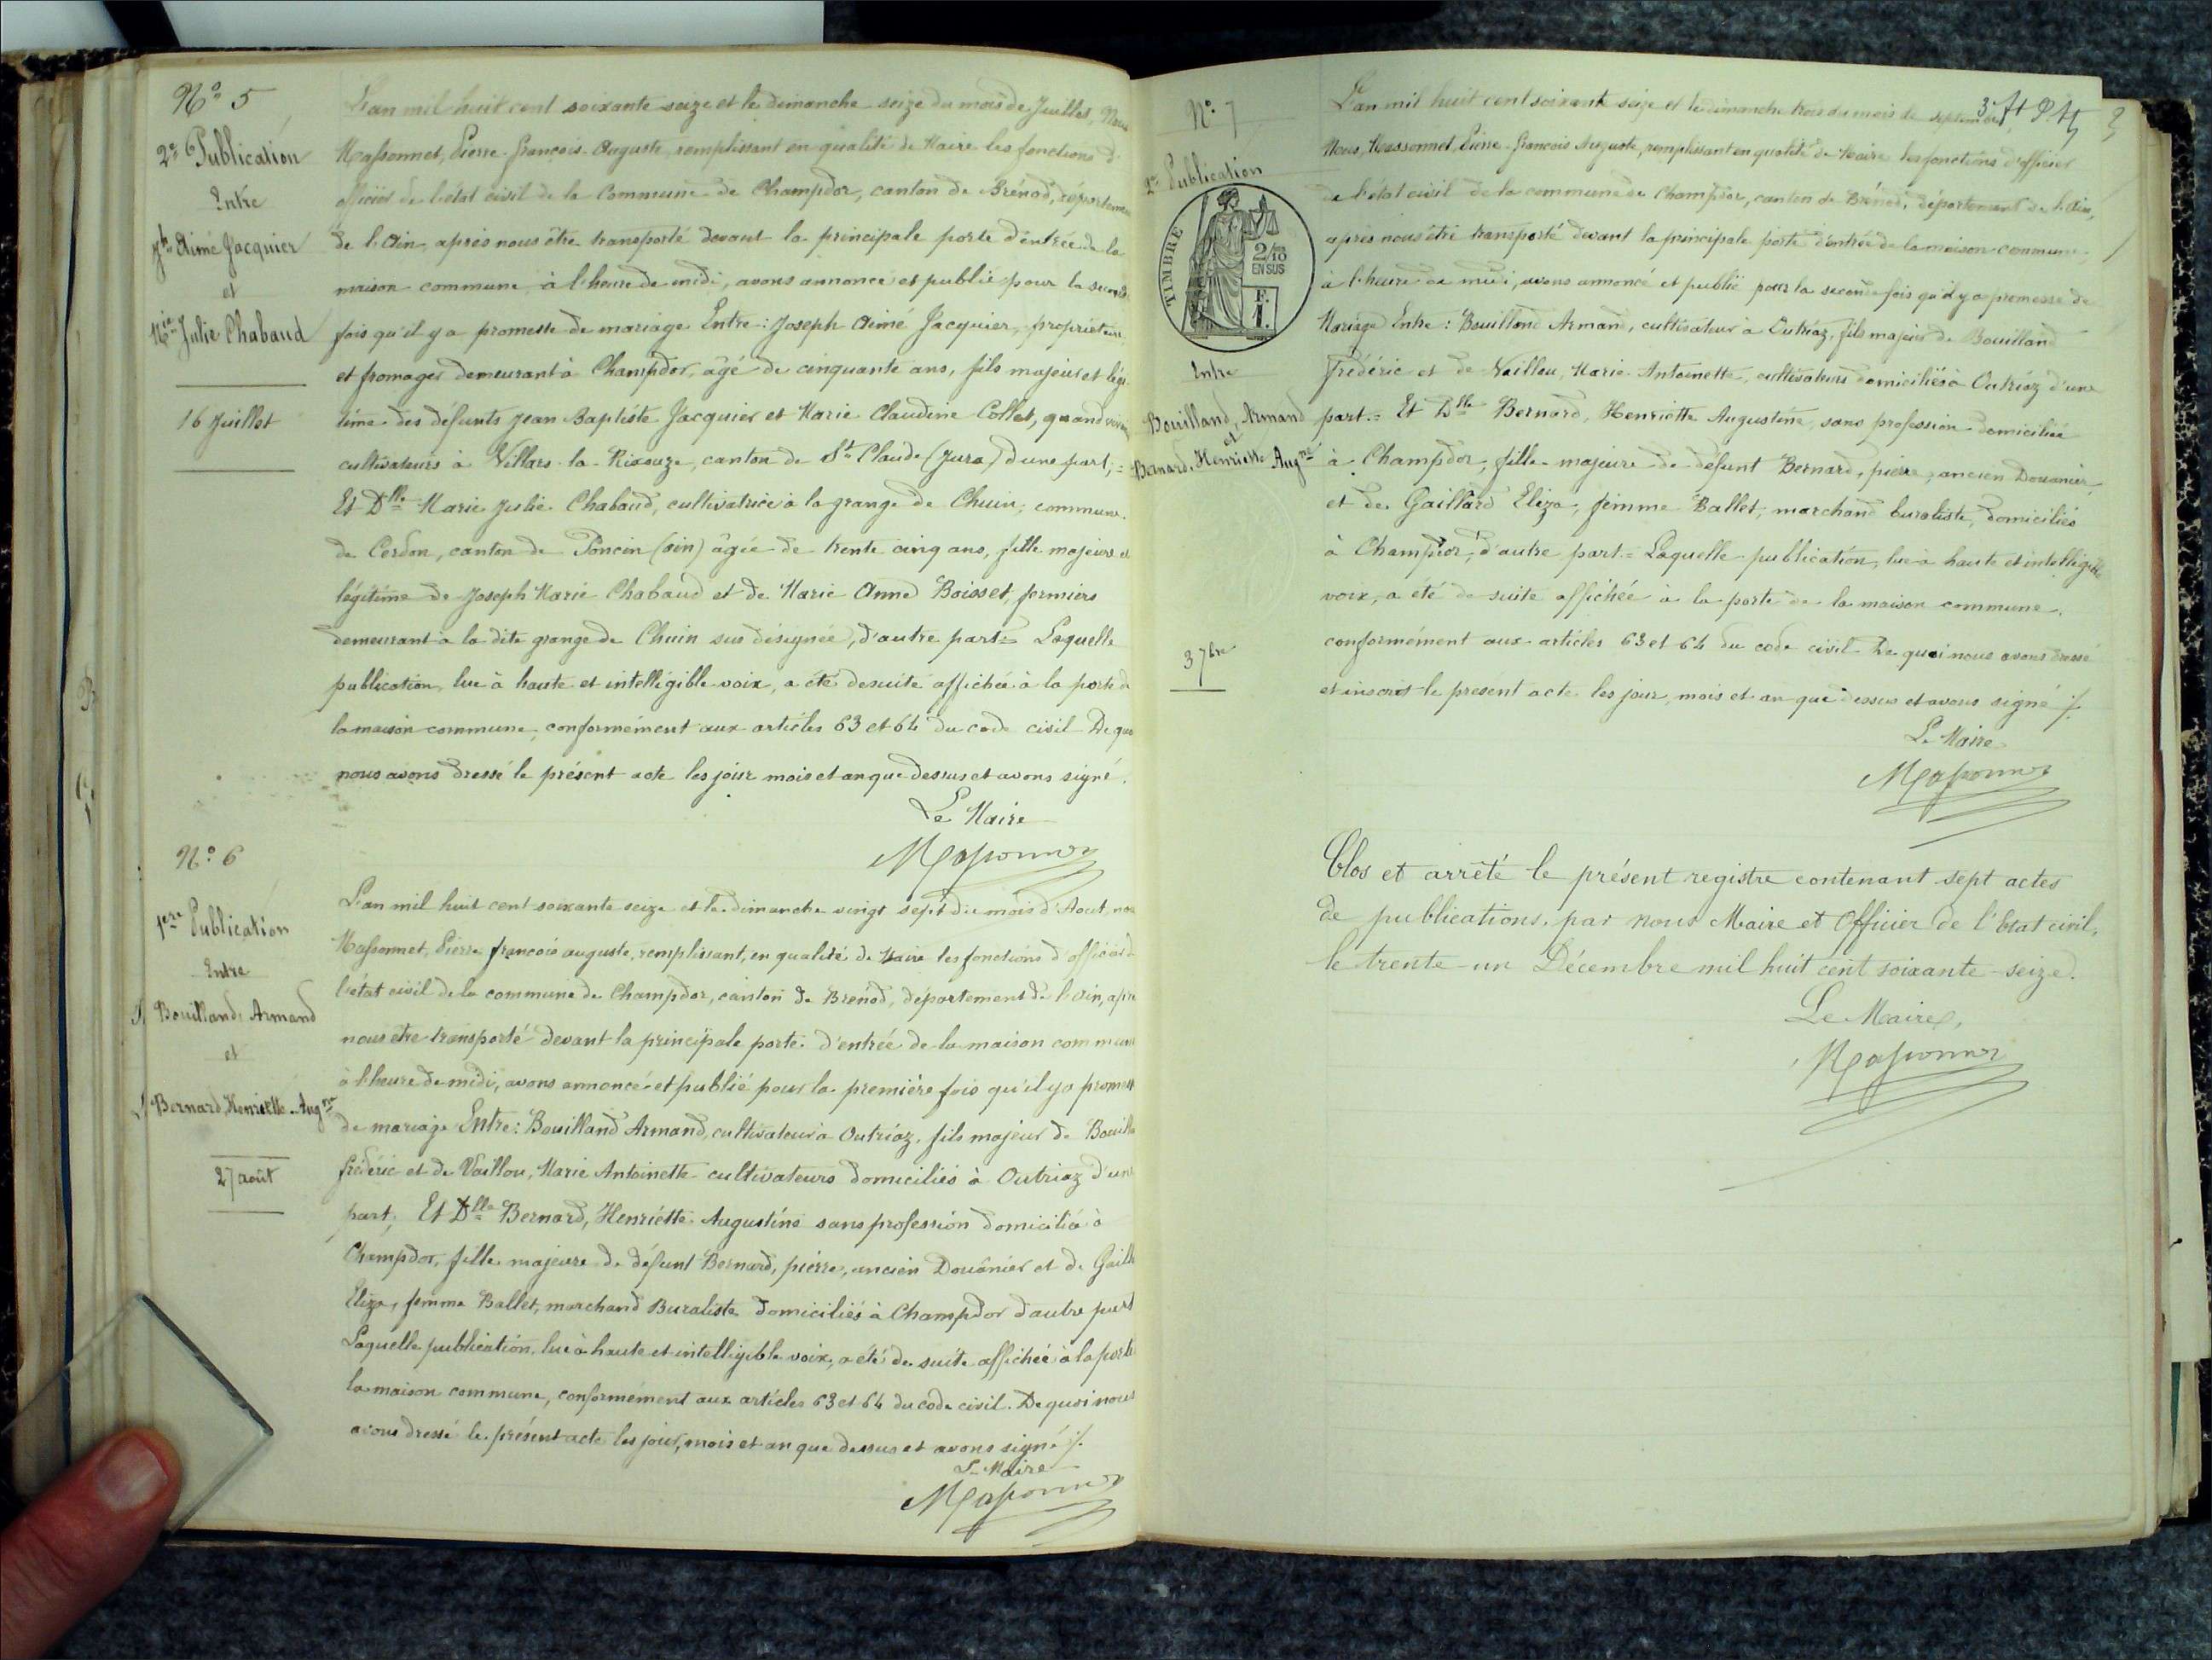 N° 5
2e Publication
Entre
Jh Aimé Jacquier
et
Mie Julie Chabaud
16 Juillet
L'an mil huit cent soixante seize et le dimanche seize du mois de Juillet, Nous
Massonnet, Pierre François Auguste, remplissant en qualité de Maire les fonctions d'
officier de l'état civil de la Commune de Champdor, canton de Brénod, département
de l'Ain, après nous être transporté devant la principale porte d'entrée de la
maison commune, à l'heure de midi, avons annoncé et publié pour la seconde
fois qu'il y a promesse de mariage Entre : Joseph Aimé Jacquier, propriétaire
et fromager demeurant à Champdor, âgé de cinquante ans, fils majeur et légi-
time des défunts Jean Baptiste Jacquier et Marie Claudine Collet, quand vivaient
cultivateurs à Villars-la-Rixouze, canton de St Claude (Jura) d'une part, =
Et Dlle Marie Julie Chabaud, cultivatrice à la grange de Chuin, commune
de Cerdon, canton de Poncin (ain) âgée de trente cinq ans, fille majeure et
légitime de Joseph Marie Chabaud et de Marie Anne Boisset, fermiers
demeurant à la dite grange de Chuin sus désignée, d'autre part = Laquelle
publication, lue à haute et intelligible voix, a été de suite affichée à la porte de
la maison commune, conformément aux articles 63 et 64 du code civil De quoi
nous avons dressé le présent acte les jour mois et an que dessus et avons signé.
Le Maire
Massonnet
N° 6
1ere Publication
Entre
Bouilland, Armand
et
Bernard, Henriette Augne
27 août
L'an mil huit cent soixante seize et le dimanche vingt sept du mois d'Aout, nous
Massonnet, Pierre françois auguste, remplissant, en qualité de Maire les fonctions d'officier de
l'état civil de la commune de Champdor, canton de Brenod, département de l'ain, après
nous être transporté devant la principale porte d'entrée de la maison commune
à l'heure de midi, avons annoncé et publié pour la première fois qu'il y a promesse
de mariage Entre : Bouilland Armand, cultivateur à Outriaz, fils majeur de Bouilla
frédéric et de Vaillou, Marie Antoinette cultivateurs domiciliés à Outriaz d'une
part, Et Dlle Bernard, Henriette Augustine sans profession domiciliée à
Champdor, fille majeure de défunt Bernard, pierre, ancien Douânier et de Gaill
Eliza, femme Ballet, marchand Buraliste domiciliés à Champdor d'autre part
Laquelle publication, lue à haute et intelligible voix, a été de suite affichée à la porte
la maison commune, conformément aux articles 63 et 64 du code civil. De quoi nous
avons dressé le présent acte les jour, mois et an que dessus et avons signé ./.
Le Maire
Massonnet
N° 7
2e Publication
TIMBRE
2/10
EN SUS
F.
1.
Entre
Bouilland, Armand
et
Bernard, Henriette Augne
3 7bre
L'an mil huit cent soixante seize et le dimanche trois du mois de septembre,
Nous, Massonnet, Pierre François Auguste, remplissant en qualité de Maire les fonctions d'officier
de l'état civil de la commune de Champdor, canton de Brénod, département de l'Ain,
après nous être transporté devant la principale porte d'entrée de la maison commune
à l'heure de midi, avons annoncé et publié pour la seconde fois qu'il y a promesse de
Mariage Entre : Bouilland Armand, cultivateur à Outriaz, fils majeur de Bouilland
frédéric et de Vaillou, Marie Antoinette, cultivateurs domiciliés à Outriaz d'une
part = Et Dlle Bernard, Henriette Augustine, sans profession domiciliée
à Champdor, fille majeure de défunt Bernard, pierre, ancien Douanier,
et de Gaillard Eliza, femme Ballet, marchand buraliste, domiciliés
à Champdor, d'autre part = Laquelle publication, lue à haute et intelligible
voix, a été de suite affichée à la porte de la maison commune,
conformément aux articles 63 et 64 du code civil De quoi nous avons dressé
et inscrit le présent acte les jour, mois et an que dessus et avons signé ./.
Le Maire
Massonnet
Clos et arrêté le présent registre contenant sept actes
de publications, par nous Maire et Officier de l'Etat civil,
le trente-un Décembre mil huit cent soixante-seize.
Le Maire,
Massonnet